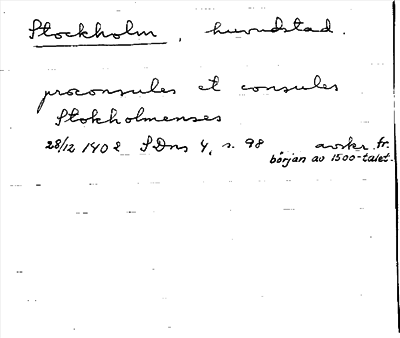 Stockholm, huvudstad.
proconsules et consules
Stokholmenses
28/12 1402 SDns 4, s. 98 avskr. fr.
början av 1500-talet.